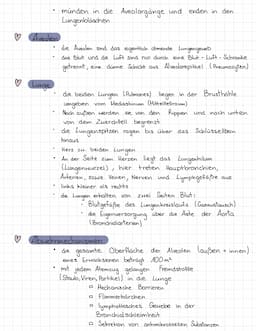 • münden in die Alveolargänge und enden in den
Lungenbläschen
Alveolen
• die Alveolen sind das eigentlich atmende Lungengewebe
• das Blut und die Luft sind nur durch eine Blut - Luft - Schranke
getrennt, eine dünne Schicht aus Alveolarepithel (Pneumozyten)
Lunge
• die beiden Lungen (Pulmones) liegen in der Brusthöhle
umgeben vom Mediastinum (Mittelfellraum)
• Nach außen werden sie von den Rippen und nach unten
von dem Zwerchfell begrenzt
• die Lungenspitzen ragen bis über das Schlüsselbein
hinaus
• Herz zw. beiden Lungen
• An der Seite zum Herzen liegt das Lungenhilum
(Lungenwurzel), hier treten Hauptbronchien,
Arterien, sowie Venen, Nerven und Lymphgefäße aus
• links kleiner als rechts
• die Lungen erhalten von zwei Seiten Blut:
• Blutgefäße des Lungenkreislaufs (Gasaustausch)
• die Eigenversorgung über die Äste der Aorta
(Bronchialarterien)
Abwehrmechanismen
• die gesamte Oberfläche der Alveolen (außen + innen)
eines Erwachsenen beträgt 100m²
• mit jedem Atemzug gelangen Fremdstoffe
(Staub, Viren, Partikel) in die Lunge
▫ Mechanische Barrieren
▫ Flimmerhärchen
▫ lymphatisches Gewebe in der
Bronchialschleimhaut
▫ Sekretion von antimikrobiellen Substanzen